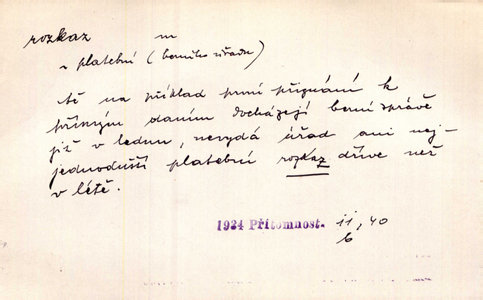 rozkaz m
~ platební (berního úřadu)
tě na příklad první přiznání k
přímým daním docházejí berní správě
již v lednu, nevydá úřad ani nej-
jednodušší platební rozkaz dříve než
v létě.
1934 Přítomnost. 11, 40
6